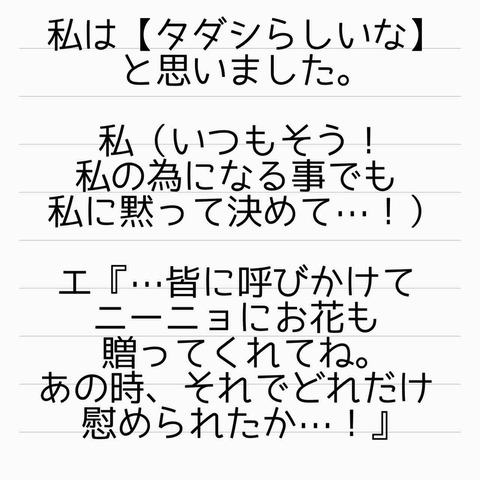 私は【タダシらしいな】
と思いました。
私（いつもそう！
私の為になる事でも
私に黙って決めて…！）
エ『…皆に呼びかけて
ニーニョにお花も
贈ってくれてね。
あの時、それでどれだけ
慰められたか…！』